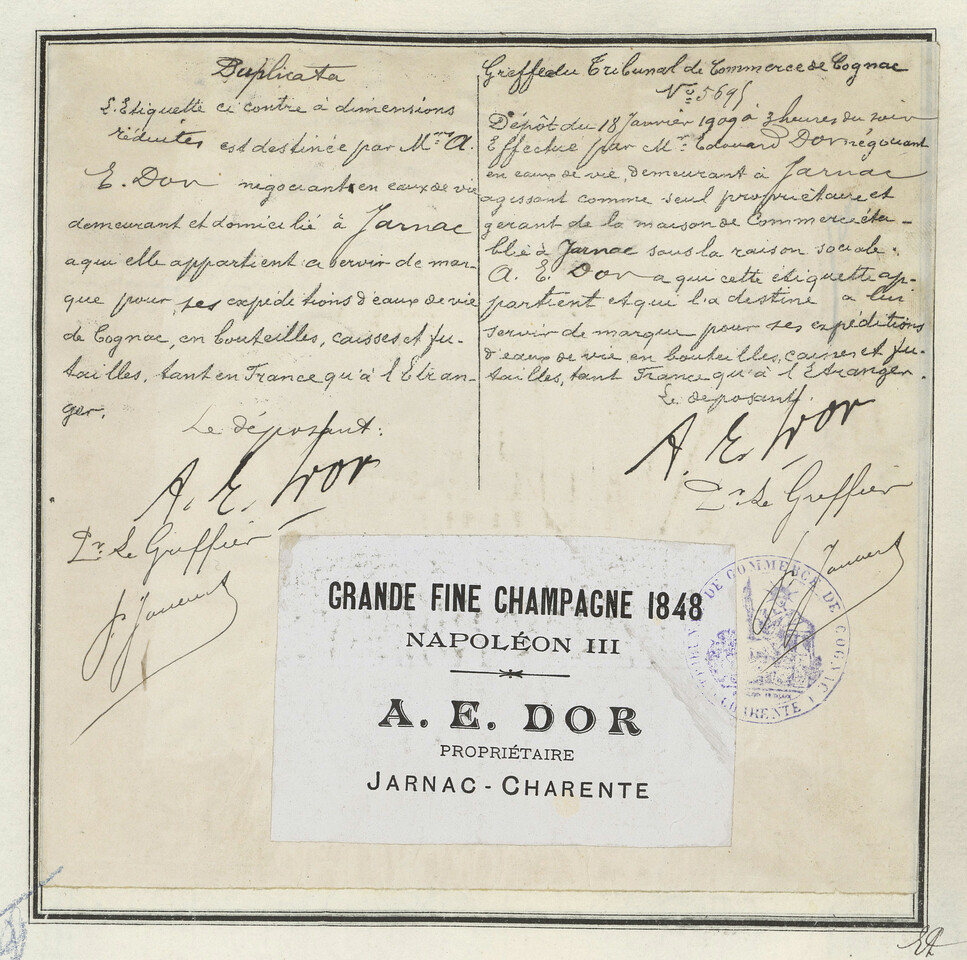 Duplicata
L'Etiquette ci contre à dimensions
réduites est destinée par Mr A.
E. Dor négociant en eaux de vie
demeurant et domicilié à Jarnac
a qui elle appartient a servir de mar-
que pour ses expéditions d'eaux de vie
de Cognac, en bouteilles, caisses et fu-
tailles, tant en France qu'à l'Etran-
ger.
Le déposant:
A. E. Dor
Pr Le Greffier
Greffe du Tribunal de Commerce de Cognac
No 5695
Dépôt du 18 Janvier 1909 à 3 heures du soir
Effectué par Mr Edouard Dor négociant
en eaux de vie, demeurant à Jarnac
agissant comme seul propriétaire et
gerant de la maison de Commerce éta-
blie à Jarnac sous la raison sociale.
A. E. Dor a qui cette étiquette ap-
partient et qui l'a destine a lui
servir de marque pour ses expéditions
d'eaux de vie en bouteilles, caisses et fu-
tailles, tant France qu'à l'Etranger.
Le deposant.
A. E. Dor
Pr Le Greffier
GRANDE FINE CHAMPAGNE 1848
NAPOLÉON III
A. E. DOR
PROPRIÉTAIRE
JARNAC - CHARENTE
DE COMMERCE DE COGNAC
CHARENTE